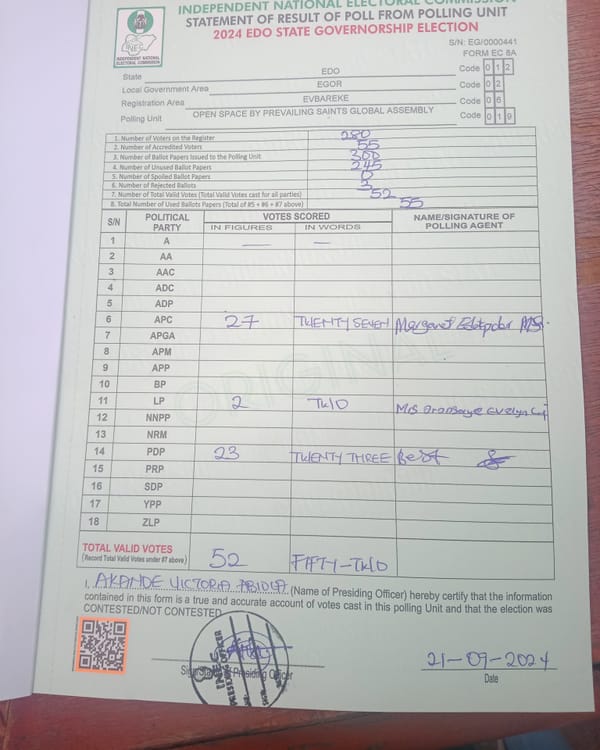 INDEPENDENT NATIONAL ELECTORAL COMMISSION
STATEMENT OF RESULT OF POLL FROM POLLING UNIT
2024 EDO STATE GOVERNORSHIP ELECTION
INEC
INDEPENDENT NATIONAL
ELECTORAL COMMISSION
S/N: EG/0000441
FORM EC 8A
State EDO Code 0 1 2
Local Government Area EGOR Code 0 2
Registration Area EVBAREKE Code 0 6
Polling Unit OPEN SPACE BY PREVAILING SAINTS GLOBAL ASSEMBLY Code 0 1 9
1. Number of Voters on the Register 280
2. Number of Accredited Voters 55
3. Number of Ballot Papers Issued to the Polling Unit 300
4. Number of Unused Ballot Papers 245
5. Number of Spoiled Ballot Papers 0
6. Number of Rejected Ballots 3
7. Number of Total Valid Votes (Total Valid Votes cast for all parties) 52
8. Total Number of Used Ballots Papers (Total of #5 + #6 + #7 above) 55
S/N POLITICAL PARTY VOTES SCORED NAME/SIGNATURE OF POLLING AGENT
IN FIGURES IN WORDS
1 A — —
2 AA
3 AAC
4 ADC
5 ADP
6 APC 27 TWENTY SEVEN Margaret
7 APGA
8 APM
9 APP
10 BP
11 LP 2 TWO Mrs Evelyn
12 NNPP
13 NRM
14 PDP 23 TWENTY THREE Best
15 PRP
16 SDP
17 YPP
18 ZLP
ORIGINAL
TOTAL VALID VOTES 52 FIFTY-TWO
(Record Total Valid Votes under #7 above)
I, AKANDE VICTORIA ABIOLA (Name of Presiding Officer) hereby certify that the information
contained in this form is a true and accurate account of votes cast in this polling Unit and that the election was
CONTESTED/NOT CONTESTED
Presiding Officer
INEC
PRESIDING OFFICER
21-09-2024
Date